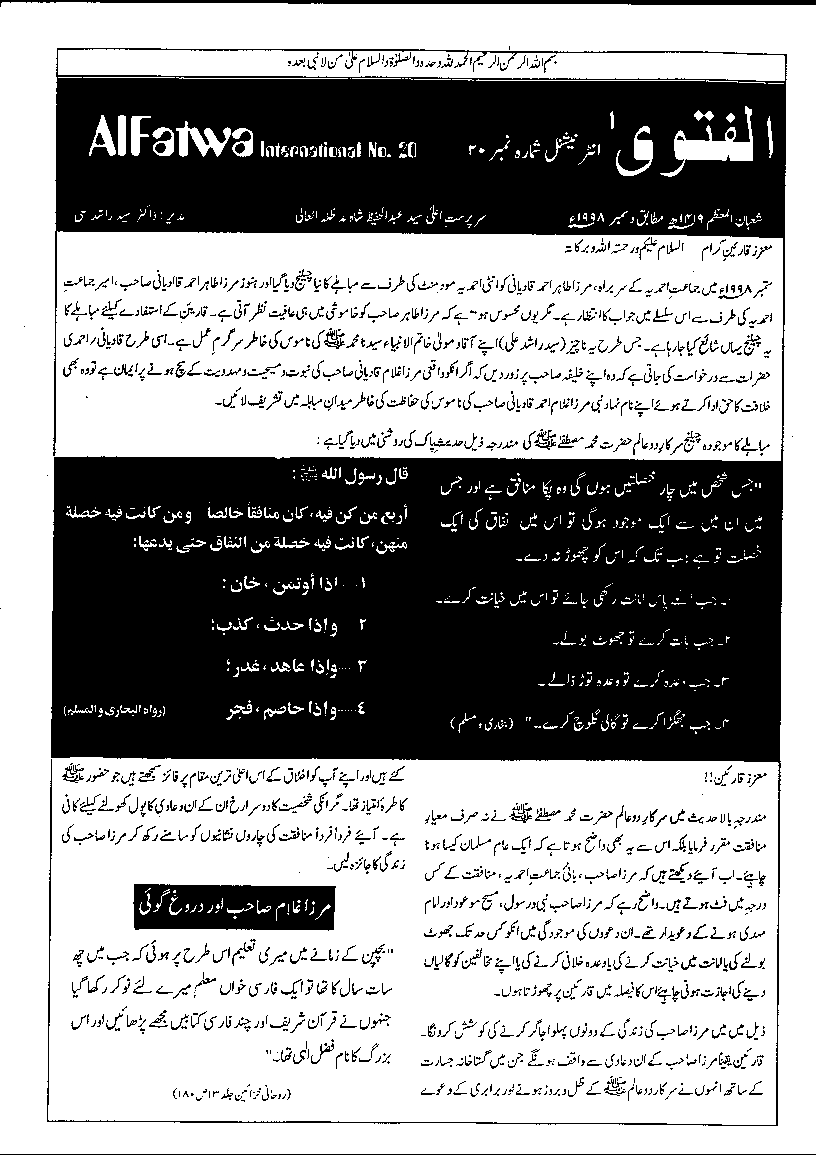 بسم اللہ الرحمٰن الرحیم الحمد للہ وحدہ والصلوٰۃ والسلام علیٰ من لا نبی بعدہ
الفتویٰ انٹرنیشنل شمارہ نمبر ۲۰
AlFatwa International No. 20
شعبان المعظم ۱۴۱۹ھ مطابق دسمبر ۱۹۹۸ء
سرپرست اعلیٰ سید عبدالحفیظ شاہ مدظلہ العالی
مدیر: ڈاکٹر سید راشد علی
معزز قارئین کرام السلام علیکم ورحمتہ اللہ وبرکاتہ
ستمبر ۱۹۹۸ء میں جماعت احمدیہ کے سربراہ، مرزا طاہر احمد قادیانی کو اینٹی احمدیہ موومنٹ کی طرف سے مباہلے کا نیا چیلنج دیا گیا اور ہنوز مرزا طاہر احمد قادیانی صاحب، امیر جماعت
احمدیہ کی طرف سے اس سلسلے میں جواب کا انتظار ہے۔ مگر یوں محسوس ہوتا ہے کہ مرزا طاہر صاحب کو خاموشی میں ہی عافیت نظر آتی ہے۔ قارئین کے استفادے کیلئے مباہلے کا
یہ چیلنج یہاں شائع کیا جا رہا ہے۔ جس طرح یہ ناچیز (سید راشد علی) اپنے آقا و مولیٰ خاتم الانبیاء سیدنا محمد ﷺ کی ناموس کی خاطر سرگرم عمل ہے۔ اسی طرح قادیانی/احمدی
حضرات سے درخواست کی جاتی ہے کہ وہ اپنے خلیفہ صاحب پر زور دیں کہ اگر انکو واقعی مرزا غلام قادیانی صاحب کی نبوت و مسیحیت و مہدویت کے سچ ہونے پر ایمان ہے تو وہ بھی
خلافت کا حق ادا کرتے ہوئے اپنے نام نہاد نبی مرزا غلام احمد قادیانی صاحب کی ناموس کی حفاظت کی خاطر میدان مباہلہ میں تشریف لائیں۔
مباہلے کا موجودہ چیلنج سرکار دو عالم حضرت محمد مصطفےٰ ﷺ کی مندرجہ ذیل حدیث پاک کی روشنی میں دیا گیا ہے:
"جس شخص میں چار خصلتیں ہوں گی وہ پکا منافق ہے اور جس
میں ان میں سے ایک موجود ہوگی تو اس میں نفاق کی ایک
خصلت تو ہے جب تک کہ اس کو چھوڑ نہ دے۔
۱۔ جب اسکے پاس امانت رکھی جائے تو اس میں خیانت کرے۔
۲۔ جب بات کرے تو جھوٹ بولے۔
۳۔ جب وعدہ کرے تو وعدہ توڑ ڈالے۔
۴۔ جب جھگڑا کرے تو گالی گلوچ کرے۔" (بخاری و مسلم)
قال رسول الله ﷺ:
أربع من كن فيه، كان منافقاً خالصاً ومن كانت فيه خصلة
منهن، كانت فيه خصلة من النفاق حتى يدعها:
١.....اذا أوتمن، خان:
٢ واذا حدث، كذب؛
٣.....واذا عاهد، غدر؛
٤.....واذا خاصم، فجر (رواه البخاري والمسلم)
معزز قارئین!!
مندرجہ بالا حدیث میں سرکار دو عالم حضرت محمد مصطفےٰ ﷺ نے نہ صرف معیار
منافقت مقرر فرمایا بلکہ اس سے یہ بھی واضح ہوتا ہے کہ ایک عام مسلمان کیسا ہونا
چاہئے۔ اب آیئے دیکھتے ہیں کہ مرزا صاحب، بانئ جماعت احمدیہ، منافقت کے کس
درجہ میں فٹ ہوتے ہیں۔ واضح رہے کہ مرزا صاحب نبی و رسول، مسیح موعود اور امام
مہدی ہونے کے دعویدار تھے۔ ان دعووں کی موجودگی میں انکو کس حد تک جھوٹ
بولنے کی یا امانت میں خیانت کرنے کی یا وعدہ خلافی کرنے کی یا اپنے مخالفین کو گالیاں
دینے کی اجازت ہونی چاہئے اس کا فیصلہ میں قارئین پر چھوڑتا ہوں۔
ذیل میں میں مرزا صاحب کی زندگی کے دونوں پہلو اجاگر کرنے کی کوشش کرونگا۔
قارئین یقیناً مرزا صاحب کے ان دعاوی سے واقف ہونگے جن میں گستاخانہ جسارت
کے ساتھ انہوں نے سرکار دو عالم ﷺ کے ظل و بروز ہونے اور برابری کے دعوے
کئے ہیں اور اپنے آپ کو اخلاق کے اس اعلیٰ ترین مقام پر فائز سمجھتے ہیں جو حضور ﷺ
کا طرہ امتیاز تھا۔ مگر انکی شخصیت کا دوسرا رخ ان کے ان دعاوی کا پول کھولنے کیلئے کافی
ہے۔ آیئے فرداً فرداً منافقت کی چاروں نشانیوں کو سامنے رکھ کر مرزا صاحب کی
زندگی کا جائزہ لیں۔
مرزا غلام صاحب اور دروغ گوئی
"بچپن کے زمانے میں میری تعلیم اس طرح پر ہوئی کہ جب میں چھ
سات سال کا تھا تو ایک فارسی خواں معلم میرے لئے نوکر رکھا گیا
جنہوں نے قرآن شریف اور چند فارسی کتابیں مجھے پڑھائیں اور اس
بزرگ کا نام فضل الٰہی تھا۔"
(روحانی خزائن جلد ۱۳ ص ۱۸۰)